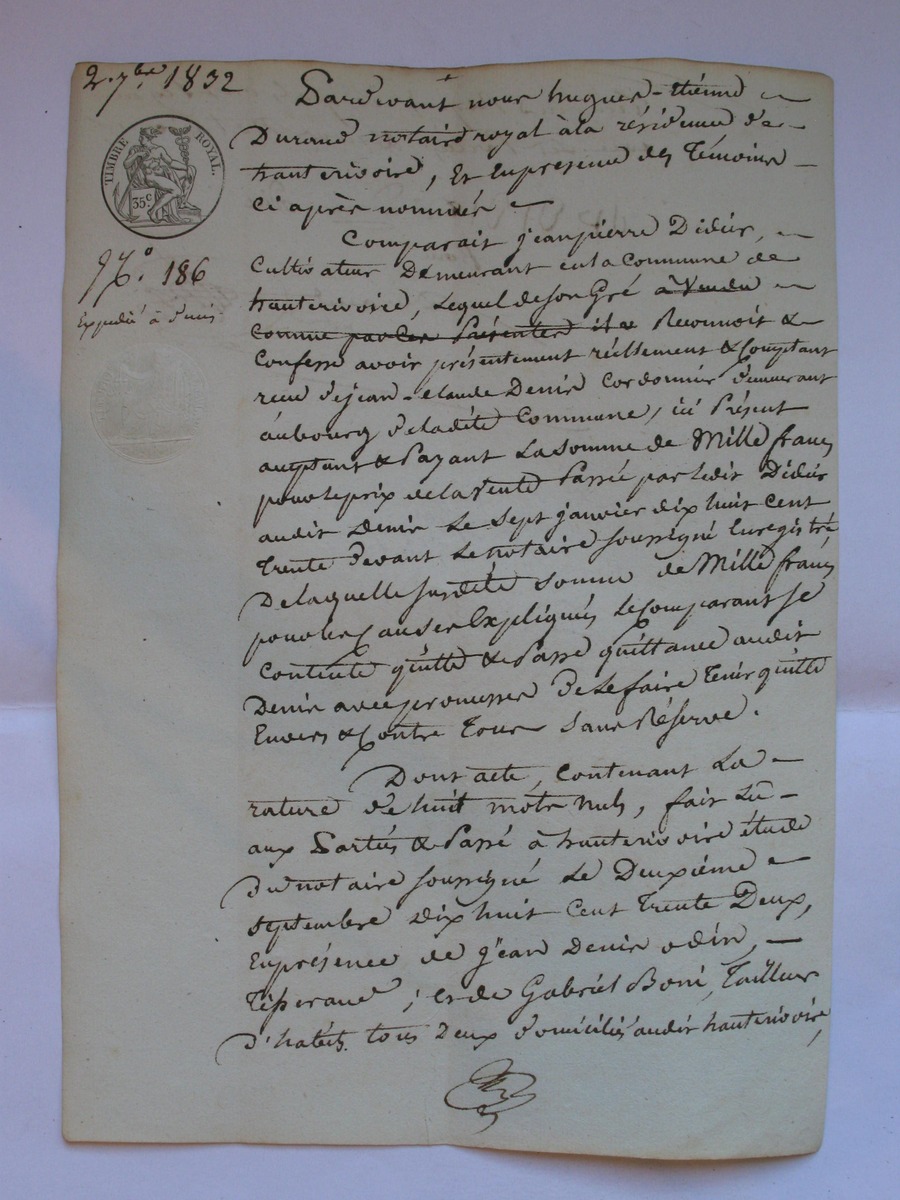 2. 7bre 1832
TIMBRE ROYAL.
35c
No. 186
Expédié à Denis
Pardevant nous hugues-etienne
Durand notaire royal à la résidence de
hauterivoire, Et En présence des Témoins
Ci après nommés
Comparait jean pierre Didier,
Cultivateur Demeurant en la Commune de
hauterivoire, Lequel de son Gré a Vendu
Comme par Ces Présentes il a Reconnoit &
Confesse avoir présentement réellement & Comptant
reçu de jean-claude Denis Cordonnier demeurant
au bourg de ladite Commune, ici Présent
acceptant & Payant La Somme de Mille francs
pour le prix de la Vente Passée par ledit Didier
audit Denis Le Sept janvier dix huit Cent
Trente devant Le notaire soussigné Enregistré,
De laquelle Susdite Somme de Mille francs
pour les Causes Expliquées Le Comparant Se
Contente quitte & Passe quittance audit
Denis avec promesse de Le faire Tenir quitte
Envers & Contre Tous Sans Réserve.
Dont acte, Contenant La
rature de huit mots nuls, fait Lu
aux Parties & Passé à hauterivoire étude
Du notaire soussigné Le Deuxième
Septembre Dix huit Cent Trente Deux,
En présence de jean Denis odin,
Tisserand, et de Gabriel Boni Tailleur
d'habits. tous Deux domiciliés audit hauterivoire,